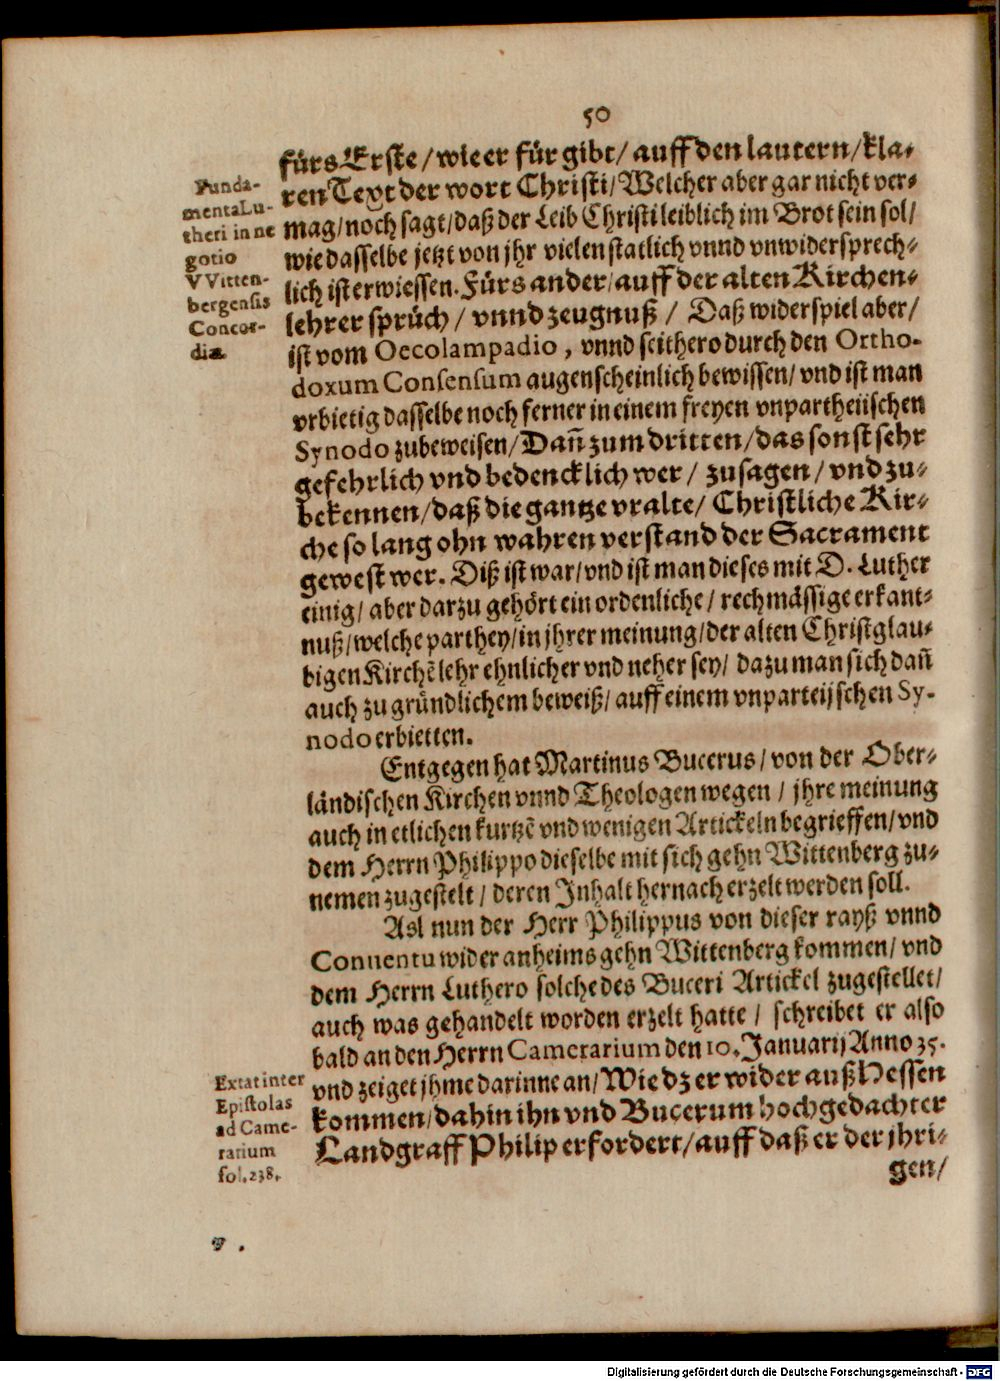 50
fürs Erste / wie er für gibt / auff den lautern / kla-
ren Text der wort Christi / Welcher aber gar nicht ver-
mag / noch sagt / daß der Leib Christi leiblich im Brot sein sol /
wie dasselbe jetzt von jhr vielen statlich vnnd vnwidersprech-
lich ist erwiessen. Fürs ander / auff der alten Kirchen-
lehrer sprüch / vnnd zeugnuß / Daß widerspiel aber /
ist vom Oecolampadio, vnnd seithero durch den Ortho-
doxum Consensum augenscheinlich bewissen / vnd ist man
vrbietig dasselbe noch ferner in einem freyen vnpartheiischen
Synodo zubeweisen / Dañ zum dritten / das sonst sehr
gefehrlich vnd bedencklich wer / zusagen / vnd zu-
bekennen / daß die gantze vralte / Christliche Kir-
che so lang ohn wahren verstand der Sacrament
gewest wer. Diß ist war / vnd ist man dieses mit D. Luther
einig / aber darzu gehört ein ordenliche / rechmässige erkant-
nuß / welche parthey / in jhrer meinung / der alten Christglau-
bigen Kirchẽ lehr ehnlicher vnd neher sey / dazu man sich dañ
auch zu gründlichem beweiß / auff einem vnparteijschen Sy-
nodo erbietten.
Entgegen hat Martinus Bucerus / von der Ober-
ländischen Kirchen vnnd Theologen wegen / jhre meinung
auch in etlichen kurtzẽ vnd wenigen Artickeln begrieffen / vnd
dem Herrn Philippo dieselbe mit sich gehn Wittenberg zu-
nemen zugestelt / deren Inhalt hernach erzelt werden soll.
Asl nun der Herr Philippus von dieser rayß vnnd
Conuentu wider anheims gehn Wittenberg kommen / vnd
dem Herrn Luthero solche des Buceri Artickel zugestellet /
auch was gehandelt worden erzelt hatte / schreibet er also
bald an den Herrn Camerarium den 10. Januarij Anno 35.
vnd zeiget jhme darinne an / Wie dz er wider auß Hessen
kommen / dahin ihn vnd Bucerum hochgedachter
Landgraff Philip erfordert / auff daß er der jhri-
gen /
Funda-
menta Lu-
theri in ne
gotio
VVitten-
bergensis
Concor-
diæ.
Extat inter
Epistolas
ad Came-
rarium
fol. 238.
Digitalisierung gefördert durch die Deutsche Forschungsgemeinschaft - DFG